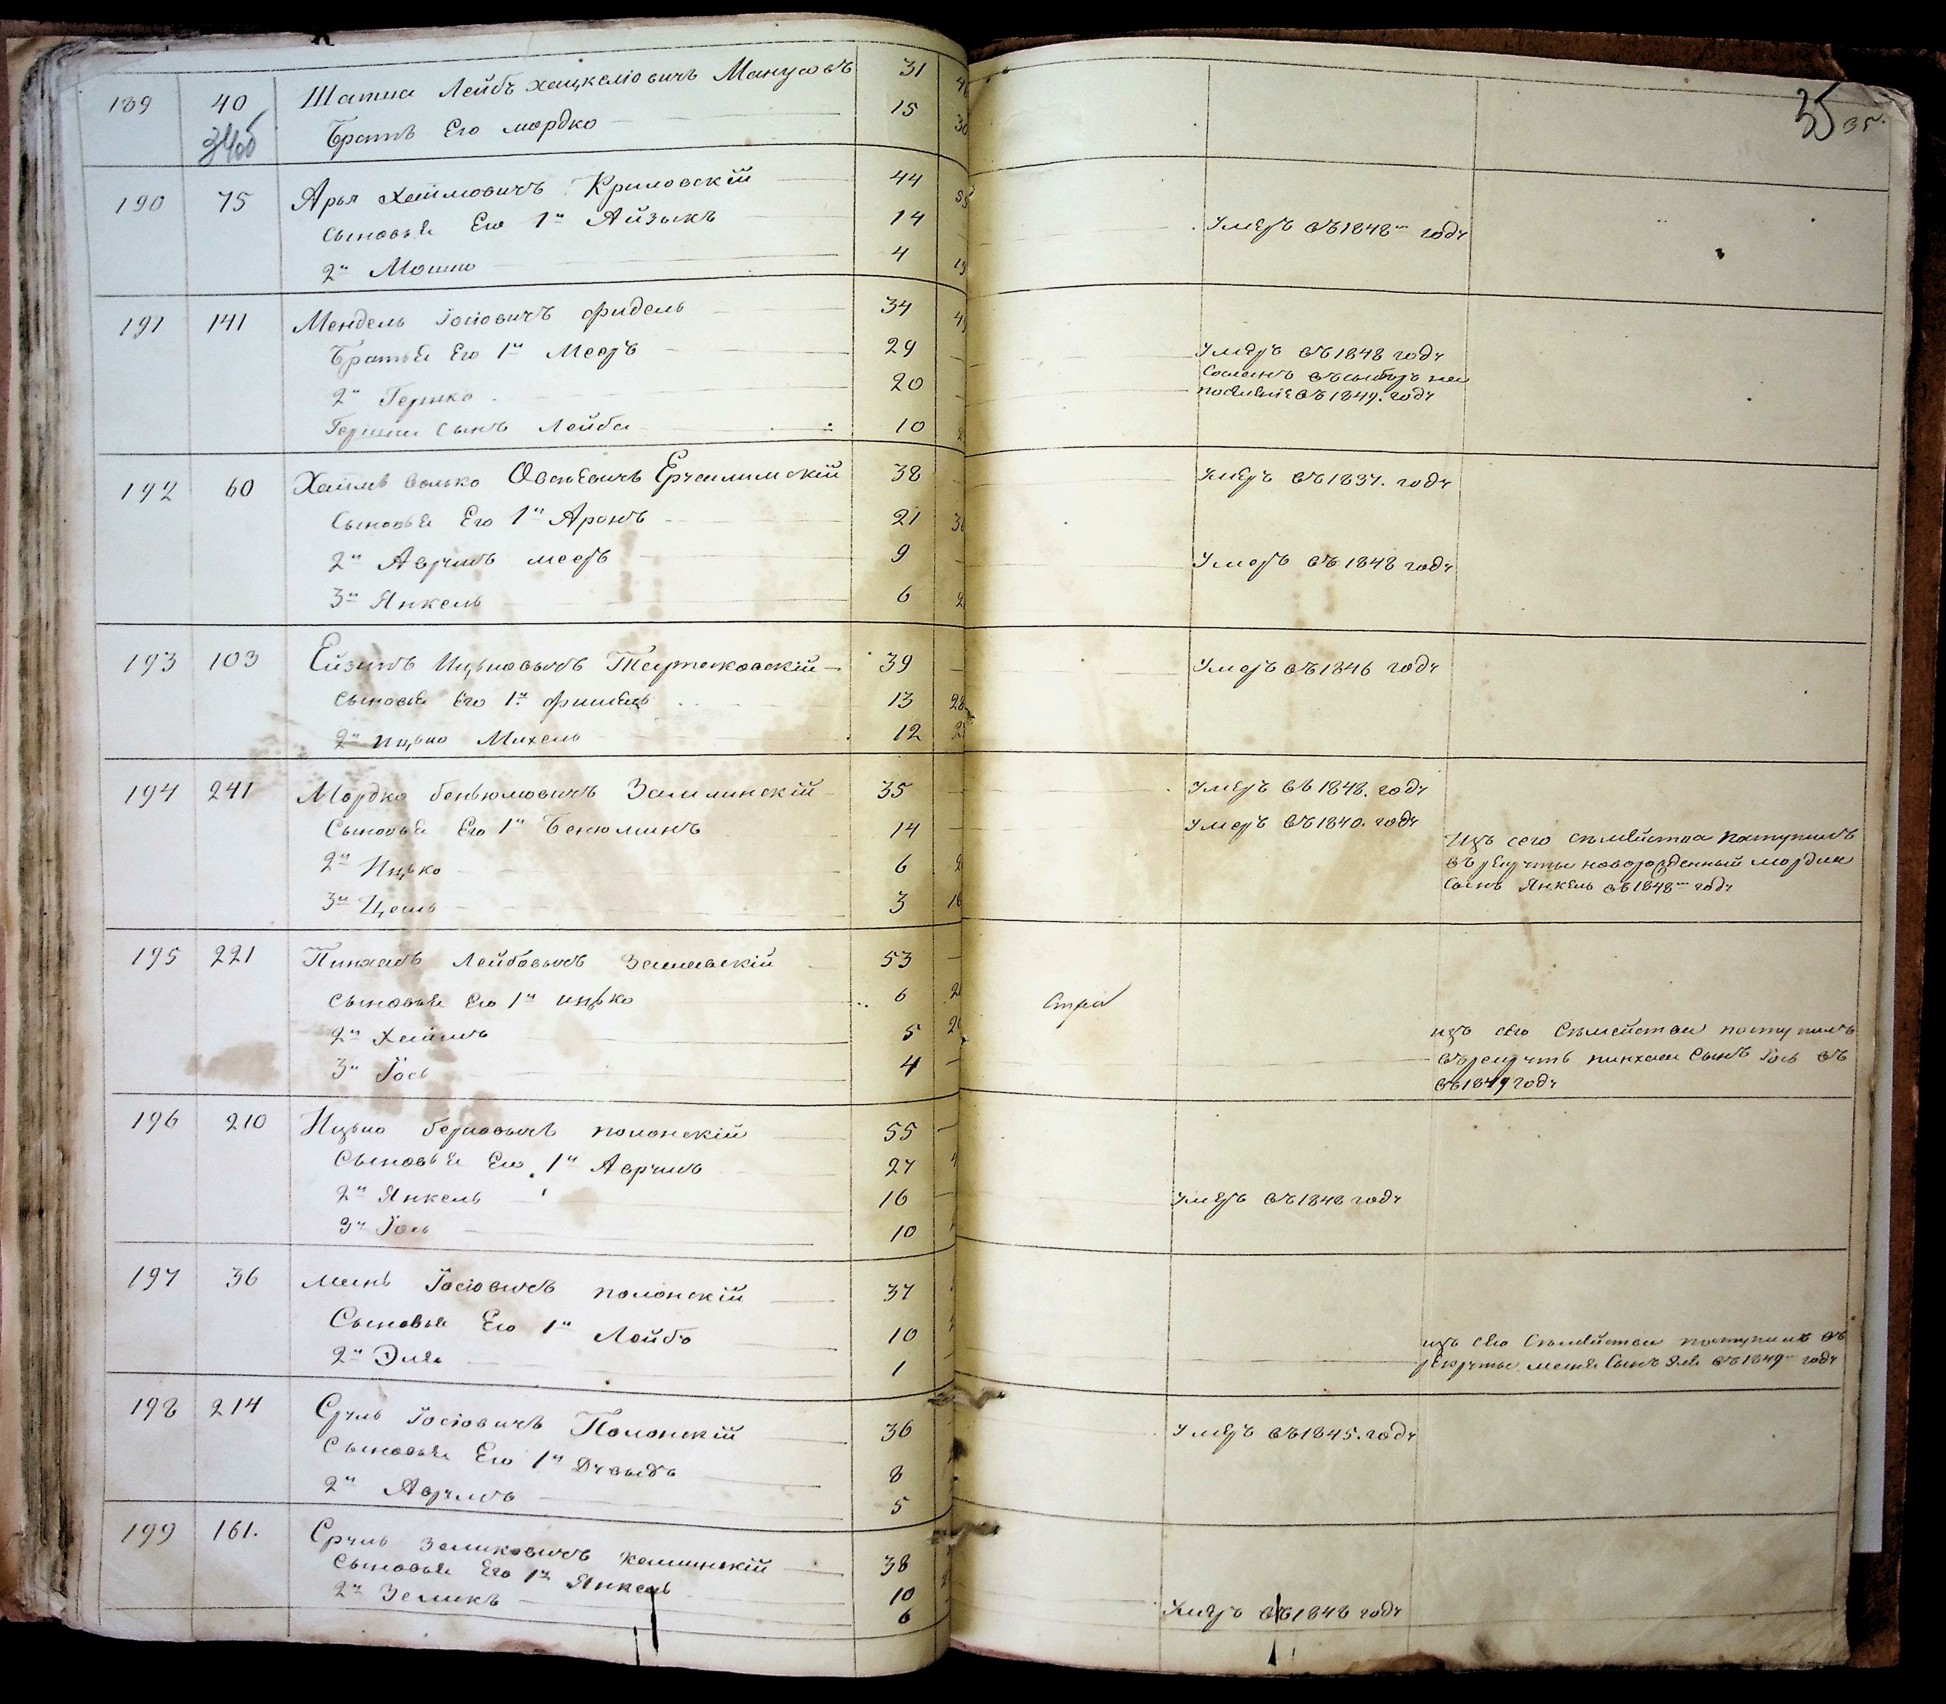 35 35.
189 40 Шатиа Лейбъ Хацкелiовичъ Манусовъ 31
Братъ Его Мордко 15
190 75 Арья Хаймовичъ Криловскiй 44
Сыновья Его 1й Айзыкъ 14 Умеръ въ 1848м году
2й Мошко 4
191 141 Мендель Iосiовичъ Фидель 34
Братья Его 1й Мееръ 29 Умеръ въ 1848 году
2й Гершко 20 Сосланъ въ Сибирь на
поселенiе въ 1849. году
Гершки Сынъ Лейба 10
192 60 Хаимъ Волько Овсiевичъ Ерусалимскiй 38 Умеръ въ 1837. году
Сыновья Его 1й Аронъ 21
2й Аврумъ Мееръ 9 Умеръ въ 1848 году
3й Янкель 6
193 103 Ицьковичъ 39 Умеръ въ 1846 году
Сыновья Его 1й Фишель 13
2й Ицько Михель 12
194 241 Мордко Беньюмовичъ 35 Умеръ въ 1848. году
Сыновья Его 1й Бенюминъ 14 Умеръ въ 1840. году
2й Ицько 6 Изъ сего Семейства поступилъ
въ рекруты новорожденный Мордки
3й 3 Сынъ Янкель въ 1848м году
195 221 Пинхасъ Лейбовичъ 53
Сыновья Его 1й Ицько 6
2й Хаимъ 5 изъ сего Семейства поступилъ
3й Iось 4 въ рекруты Пинхаса Сынъ Iось въ
въ 1849 году
196 210 Ицько Берковичъ Полонскiй 55
Сыновья Его 1й Аврумъ 27
2й Янкель 16 Умеръ въ 1848 году
3й Iось 10
197 36 Iосiовичъ Полонскiй 37
Сыновья Его 1й Лейбъ 10 изъ сего Семейства поступилъ въ
2й Эля 1 рекруты Сынъ Эля въ 1849м году
198 214 Сруль Iосiовичъ Полонскiй 36 Умеръ въ 1845. году
Сыновья Его 1й Дувыдъ 8
2й Аврумъ 5
199 161. Сруль Зеликовичъ Каминскiй 38
Сыновья Его 1й Янкель 10
2й Зеликъ 6 Умеръ въ 1848 году